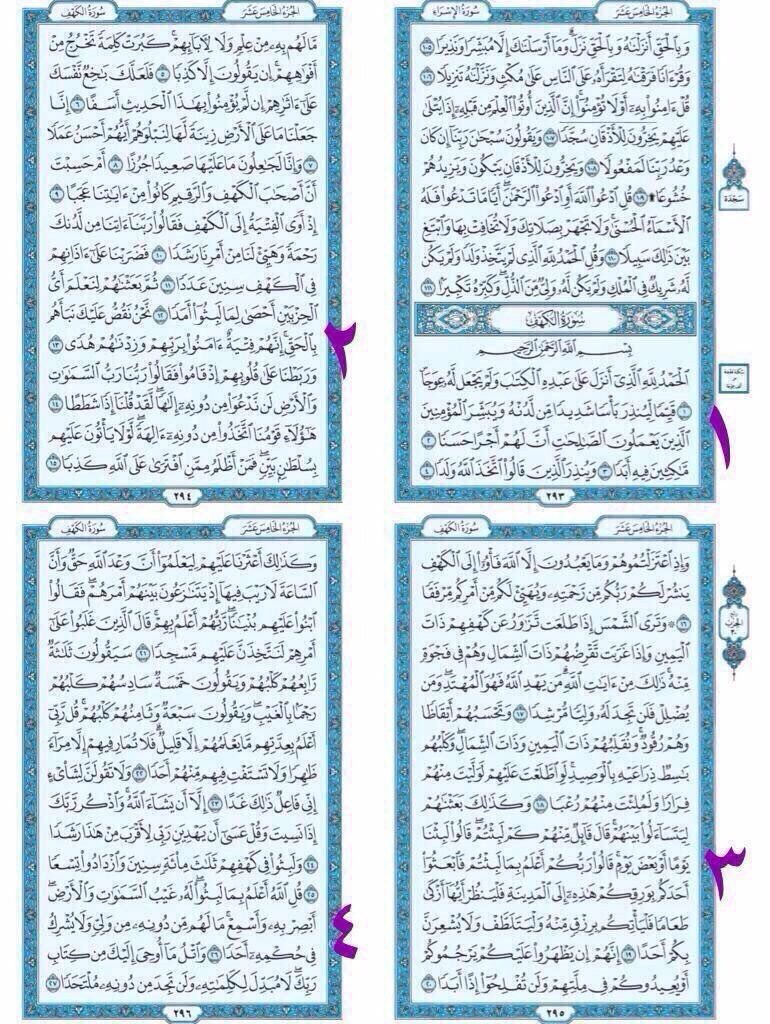 الجُزْءُ الخَامِسَ عَشَرَ
سُورَةُ الإِسْرَاءِ
وَبِٱلْحَقِّ أَنزَلْنَٰهُ وَبِٱلْحَقِّ نَزَلَ ۗ وَمَآ أَرْسَلْنَٰكَ إِلَّا مُبَشِّرًا وَنَذِيرًا ١٠٥
وَقُرْءَانًا فَرَقْنَٰهُ لِتَقْرَأَهُۥ عَلَى ٱلنَّاسِ عَلَىٰ مُكْثٍ وَنَزَّلْنَٰهُ تَنزِيلًا ١٠٦
قُلْ ءَامِنُوا۟ بِهِۦٓ أَوْ لَا تُؤْمِنُوٓا۟ ۚ إِنَّ ٱلَّذِينَ أُوتُوا۟ ٱلْعِلْمَ مِن قَبْلِهِۦٓ إِذَا يُتْلَىٰ
عَلَيْهِمْ يَخِرُّونَ لِلْأَذْقَانِ سُجَّدًا ١٠٧ وَيَقُولُونَ سُبْحَٰنَ رَبِّنَآ إِن كَانَ
وَعْدُ رَبِّنَا لَمَفْعُولًا ١٠٨ وَيَخِرُّونَ لِلْأَذْقَانِ يَبْكُونَ وَيَزِيدُهُمْ
خُشُوعًا ۩ ١٠٩ قُلِ ٱدْعُوا۟ ٱللَّهَ أَوِ ٱدْعُوا۟ ٱلرَّحْمَٰنَ ۖ أَيًّا مَّا تَدْعُوا۟ فَلَهُ
ٱلْأَسْمَآءُ ٱلْحُسْنَىٰ ۚ وَلَا تَجْهَرْ بِصَلَاتِكَ وَلَا تُخَافِتْ بِهَا وَٱبْتَغِ
بَيْنَ ذَٰلِكَ سَبِيلًا ١١٠ وَقُلِ ٱلْحَمْدُ لِلَّهِ ٱلَّذِى لَمْ يَتَّخِذْ وَلَدًا وَلَمْ يَكُن
لَّهُۥ شَرِيكٌ فِى ٱلْمُلْكِ وَلَمْ يَكُن لَّهُۥ وَلِىٌّ مِّنَ ٱلذُّلِّ ۖ وَكَبِّرْهُ تَكْبِيرًۢا ١١١
سُورَةُ الكَهْفِ
بِسْمِ ٱللَّهِ ٱلرَّحْمَٰنِ ٱلرَّحِيمِ
ٱلْحَمْدُ لِلَّهِ ٱلَّذِىٓ أَنزَلَ عَلَىٰ عَبْدِهِ ٱلْكِتَٰبَ وَلَمْ يَجْعَل لَّهُۥ عِوَجَا
١ قَيِّمًا لِّيُنذِرَ بَأْسًا شَدِيدًا مِّن لَّدُنْهُ وَيُبَشِّرَ ٱلْمُؤْمِنِينَ
ٱلَّذِينَ يَعْمَلُونَ ٱلصَّٰلِحَٰتِ أَنَّ لَهُمْ أَجْرًا حَسَنًا ٢
مَّٰكِثِينَ فِيهِ أَبَدًا ٣ وَيُنذِرَ ٱلَّذِينَ قَالُوا۟ ٱتَّخَذَ ٱللَّهُ وَلَدًا ٤
٢٩٣
سَجْدَة
١
الجُزْءُ الخَامِسَ عَشَرَ
سُورَةُ الكَهْفِ
مَّا لَهُم بِهِۦ مِنْ عِلْمٍ وَلَا لِءَابَآئِهِمْ ۚ كَبُرَتْ كَلِمَةً تَخْرُجُ مِنْ
أَفْوَٰهِهِمْ ۚ إِن يَقُولُونَ إِلَّا كَذِبًا ٥ فَلَعَلَّكَ بَٰخِعٌ نَّفْسَكَ
عَلَىٰٓ ءَاثَٰرِهِمْ إِن لَّمْ يُؤْمِنُوا۟ بِهَٰذَا ٱلْحَدِيثِ أَسَفًا ٦ إِنَّا
جَعَلْنَا مَا عَلَى ٱلْأَرْضِ زِينَةً لَّهَا لِنَبْلُوَهُمْ أَيُّهُمْ أَحْسَنُ عَمَلًا
٧ وَإِنَّا لَجَٰعِلُونَ مَا عَلَيْهَا صَعِيدًا جُرُزًا ٨ أَمْ حَسِبْتَ
أَنَّ أَصْحَٰبَ ٱلْكَهْفِ وَٱلرَّقِيمِ كَانُوا۟ مِنْ ءَايَٰتِنَا عَجَبًا ٩
إِذْ أَوَى ٱلْفِتْيَةُ إِلَى ٱلْكَهْفِ فَقَالُوا۟ رَبَّنَآ ءَاتِنَا مِن لَّدُنكَ
رَحْمَةً وَهَيِّئْ لَنَا مِنْ أَمْرِنَا رَشَدًا ١٠ فَضَرَبْنَا عَلَىٰٓ ءَاذَانِهِمْ
فِى ٱلْكَهْفِ سِنِينَ عَدَدًا ١١ ثُمَّ بَعَثْنَٰهُمْ لِنَعْلَمَ أَىُّ
ٱلْحِزْبَيْنِ أَحْصَىٰ لِمَا لَبِثُوٓا۟ أَمَدًا ١٢ نَّحْنُ نَقُصُّ عَلَيْكَ نَبَأَهُم
بِٱلْحَقِّ ۚ إِنَّهُمْ فِتْيَةٌ ءَامَنُوا۟ بِرَبِّهِمْ وَزِدْنَٰهُمْ هُدًى ١٣
وَرَبَطْنَا عَلَىٰ قُلُوبِهِمْ إِذْ قَامُوا۟ فَقَالُوا۟ رَبُّنَا رَبُّ ٱلسَّمَٰوَٰتِ
وَٱلْأَرْضِ لَن نَّدْعُوَا۟ مِن دُونِهِۦٓ إِلَٰهًا ۖ لَّقَدْ قُلْنَآ إِذًا شَطَطًا ١٤
هَٰٓؤُلَآءِ قَوْمُنَا ٱتَّخَذُوا۟ مِن دُونِهِۦٓ ءَالِهَةً ۖ لَّوْلَا يَأْتُونَ عَلَيْهِم
بِسُلْطَٰنٍۭ بَيِّنٍ ۖ فَمَنْ أَظْلَمُ مِمَّنِ ٱفْتَرَىٰ عَلَى ٱللَّهِ كَذِبًا ١٥
٢٩٤
٢
الجُزْءُ الخَامِسَ عَشَرَ
سُورَةُ الكَهْفِ
وَإِذِ ٱعْتَزَلْتُمُوهُمْ وَمَا يَعْبُدُونَ إِلَّا ٱللَّهَ فَأْوُۥٓا۟ إِلَى ٱلْكَهْفِ
يَنشُرْ لَكُمْ رَبُّكُم مِّن رَّحْمَتِهِۦ وَيُهَيِّئْ لَكُم مِّنْ أَمْرِكُم مِّرْفَقًا
١٦ ۞ وَتَرَى ٱلشَّمْسَ إِذَا طَلَعَت تَّزَٰوَرُ عَن كَهْفِهِمْ ذَاتَ
ٱلْيَمِينِ وَإِذَا غَرَبَت تَّقْرِضُهُمْ ذَاتَ ٱلشِّمَالِ وَهُمْ فِى فَجْوَةٍ
مِّنْهُ ۚ ذَٰلِكَ مِنْ ءَايَٰتِ ٱللَّهِ ۗ مَن يَهْدِ ٱللَّهُ فَهُوَ ٱلْمُهْتَدِ ۖ وَمَن
يُضْلِلْ فَلَن تَجِدَ لَهُۥ وَلِيًّا مُّرْشِدًا ١٧ وَتَحْسَبُهُمْ أَيْقَاظًا
وَهُمْ رُقُودٌ ۚ وَنُقَلِّبُهُمْ ذَاتَ ٱلْيَمِينِ وَذَاتَ ٱلشِّمَالِ ۖ وَكَلْبُهُم
بَٰسِطٌ ذِرَاعَيْهِ بِٱلْوَصِيدِ ۚ لَوِ ٱطَّلَعْتَ عَلَيْهِمْ لَوَلَّيْتَ مِنْهُمْ
فِرَارًا وَلَمُلِئْتَ مِنْهُمْ رُعْبًا ١٨ وَكَذَٰلِكَ بَعَثْنَٰهُمْ
لِيَتَسَآءَلُوا۟ بَيْنَهُمْ ۚ قَالَ قَآئِلٌ مِّنْهُمْ كَمْ لَبِثْتُمْ ۖ قَالُوا۟ لَبِثْنَا
يَوْمًا أَوْ بَعْضَ يَوْمٍ ۚ قَالُوا۟ رَبُّكُمْ أَعْلَمُ بِمَا لَبِثْتُمْ فَٱبْعَثُوٓا۟
أَحَدَكُم بِوَرِقِكُمْ هَٰذِهِۦٓ إِلَى ٱلْمَدِينَةِ فَلْيَنظُرْ أَيُّهَآ أَزْكَىٰ
طَعَامًا فَلْيَأْتِكُم بِرِزْقٍ مِّنْهُ وَلْيَتَلَطَّفْ وَلَا يُشْعِرَنَّ
بِكُمْ أَحَدًا ١٩ إِنَّهُمْ إِن يَظْهَرُوا۟ عَلَيْكُمْ يَرْجُمُوكُمْ
أَوْ يُعِيدُوكُمْ فِى مِلَّتِهِمْ وَلَن تُفْلِحُوٓا۟ إِذًا أَبَدًا ٢٠
٢٩٥
٣
الجُزْءُ الخَامِسَ عَشَرَ
سُورَةُ الكَهْفِ
وَكَذَٰلِكَ أَعْثَرْنَا عَلَيْهِمْ لِيَعْلَمُوٓا۟ أَنَّ وَعْدَ ٱللَّهِ حَقٌّ وَأَنَّ
ٱلسَّاعَةَ لَا رَيْبَ فِيهَآ إِذْ يَتَنَٰزَعُونَ بَيْنَهُمْ أَمْرَهُمْ ۖ فَقَالُوا۟
ٱبْنُوا۟ عَلَيْهِم بُنْيَٰنًا ۖ رَّبُّهُمْ أَعْلَمُ بِهِمْ ۚ قَالَ ٱلَّذِينَ غَلَبُوا۟ عَلَىٰٓ
أَمْرِهِمْ لَنَتَّخِذَنَّ عَلَيْهِم مَّسْجِدًا ٢١ سَيَقُولُونَ ثَلَٰثَةٌ
رَّابِعُهُمْ كَلْبُهُمْ وَيَقُولُونَ خَمْسَةٌ سَادِسُهُمْ كَلْبُهُمْ
رَجْمًۢا بِٱلْغَيْبِ ۖ وَيَقُولُونَ سَبْعَةٌ وَثَامِنُهُمْ كَلْبُهُمْ ۚ قُل رَّبِّىٓ
أَعْلَمُ بِعِدَّتِهِم مَّا يَعْلَمُهُمْ إِلَّا قَلِيلٌ ۗ فَلَا تُمَارِ فِيهِمْ إِلَّا مِرَآءً
ظَٰهِرًا وَلَا تَسْتَفْتِ فِيهِم مِّنْهُمْ أَحَدًا ٢٢ وَلَا تَقُولَنَّ لِشَا۟ىْءٍ
إِنِّى فَاعِلٌ ذَٰلِكَ غَدًا ٢٣ إِلَّآ أَن يَشَآءَ ٱللَّهُ ۚ وَٱذْكُر رَّبَّكَ
إِذَا نَسِيتَ وَقُلْ عَسَىٰٓ أَن يَهْدِيَنِ رَبِّى لِأَقْرَبَ مِنْ هَٰذَا رَشَدًا
٢٤ وَلَبِثُوا۟ فِى كَهْفِهِمْ ثَلَٰثَ مِا۟ئَةٍ سِنِينَ وَٱزْدَادُوا۟ تِسْعًا
٢٥ قُلِ ٱللَّهُ أَعْلَمُ بِمَا لَبِثُوا۟ ۖ لَهُۥ غَيْبُ ٱلسَّمَٰوَٰتِ وَٱلْأَرْضِ ۖ
أَبْصِرْ بِهِۦ وَأَسْمِعْ ۚ مَا لَهُم مِّن دُونِهِۦ مِن وَلِىٍّ وَلَا يُشْرِكُ
فِى حُكْمِهِۦٓ أَحَدًا ٢٦ وَٱتْلُ مَآ أُوحِىَ إِلَيْكَ مِن كِتَابِ
رَبِّكَ ۖ لَا مُبَدِّلَ لِكَلِمَٰتِهِۦ وَلَن تَجِدَ مِن دُونِهِۦ مُلْتَحَدًا ٢٧
٢٩٦
٤